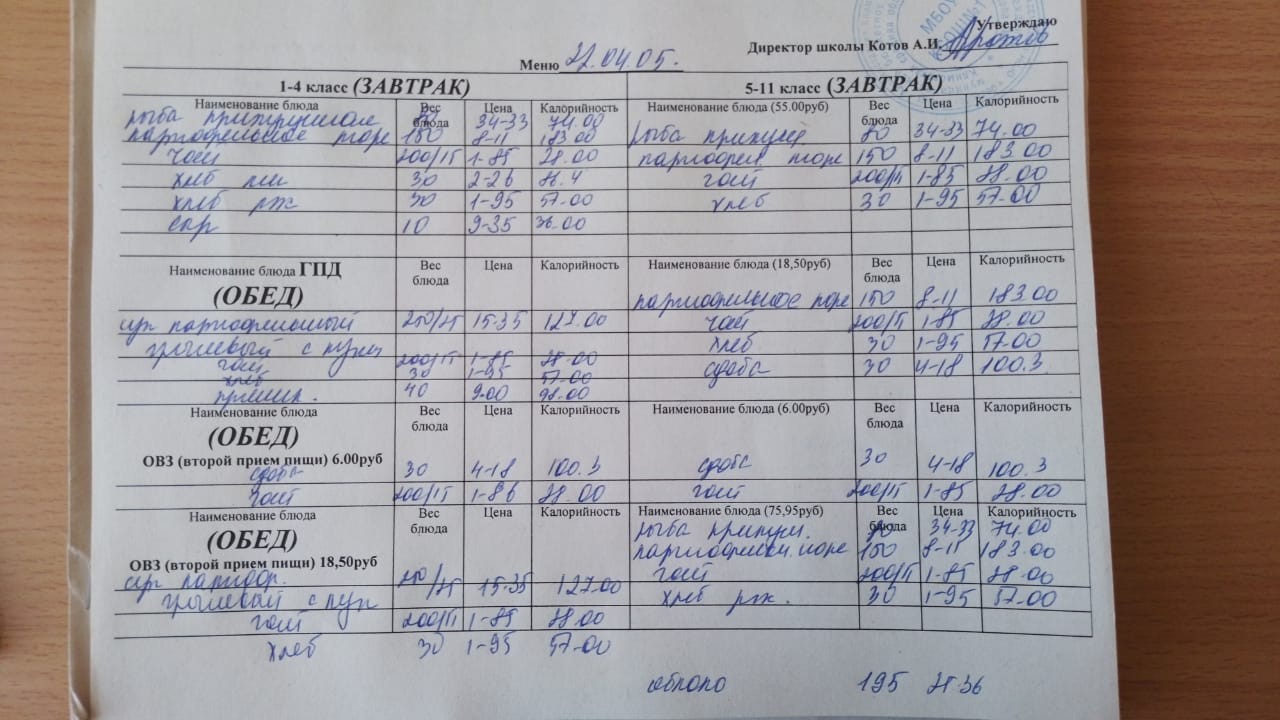 Утверждаю
Директор школы Котов А.И.
Меню 22.04.05.
1-4 класс (ЗАВТРАК) 5-11 класс (ЗАВТРАК)
Наименование блюда Вес блюда Цена Калорийность Наименование блюда (55.00руб) Вес блюда Цена Калорийность
рыба 80 34-33 74.00 рыба припущ 80 34-33 74.00
картофельное пюре 150 8-11 183.00 картофел пюре 150 8-11 183.00
чай 200/15 1-85 28.00 чай 200/15 1-85 28.00
хлеб пш 30 2-26 86.4 хлеб 30 1-95 57.00
хлеб рж 30 1-95 57.00
сыр 10 9-35 36.00
Наименование блюда ГПД Вес блюда Цена Калорийность Наименование блюда (18,50руб) Вес блюда Цена Калорийность
(ОБЕД) картофельное пюре 150 8-11 183.00
суп картофельный 250/25 15-35 127.00 чай 200/15 1-85 28.00
с хлеб 30 1-95 57.00
чай 200/15 1-85 28.00 сдоба 30 4-18 100.3
хлеб 30 1-95 57.00
пряник. 40 9-00 98.00
Наименование блюда Вес блюда Цена Калорийность Наименование блюда (6.00руб) Вес блюда Цена Калорийность
(ОБЕД)
ОВЗ (второй прием пищи) 6.00руб
сдоба 30 4-18 100.3 сдоба 30 4-18 100.3
чай 200/15 1-86 28.00 чай 200/15 1-85 28.00
Наименование блюда Вес блюда Цена Калорийность Наименование блюда (75,95руб) Вес блюда Цена Калорийность
(ОБЕД) рыба припущ. 80 34-33 74.00
ОВЗ (второй прием пищи) 18,50руб пюре 150 8-11 183.00
суп картоф. 250/25 15-35 127.00 чай 200/15 1-85 28.00
с хлеб рж. 30 1-95 57.00
чай 200/15 1-85 28.00
хлеб 30 1-95 57-00
яблоко 195 25-36